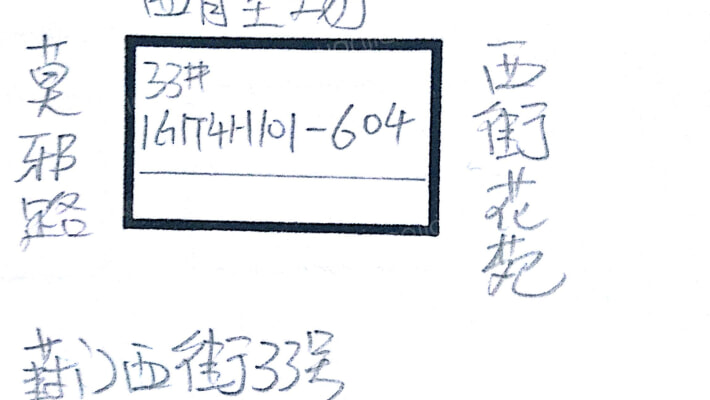 莫邪路
33#
1G1T4H101-604
西街花苑
葑门西街33号